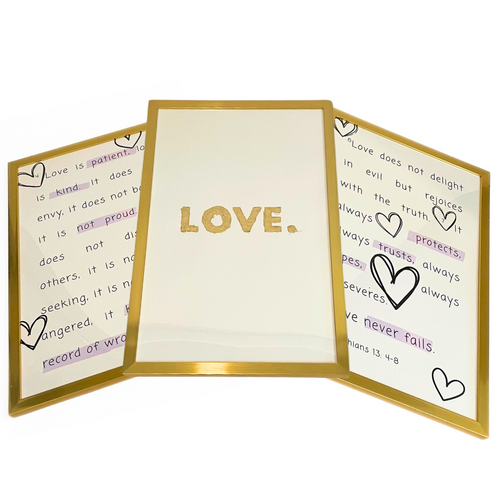 " Love is patient, lo
is kind. It does
envy, it does not b
it is not proud.
does not dis
others, it is no
seeking, it is n
angered, it k
record of wro
LOVE.
"Love does not delight
in evil but rejoices
with the truth. It
always protects,
always trusts, always
pes, always
severes.
ve never fails.
thians 13. 4-8